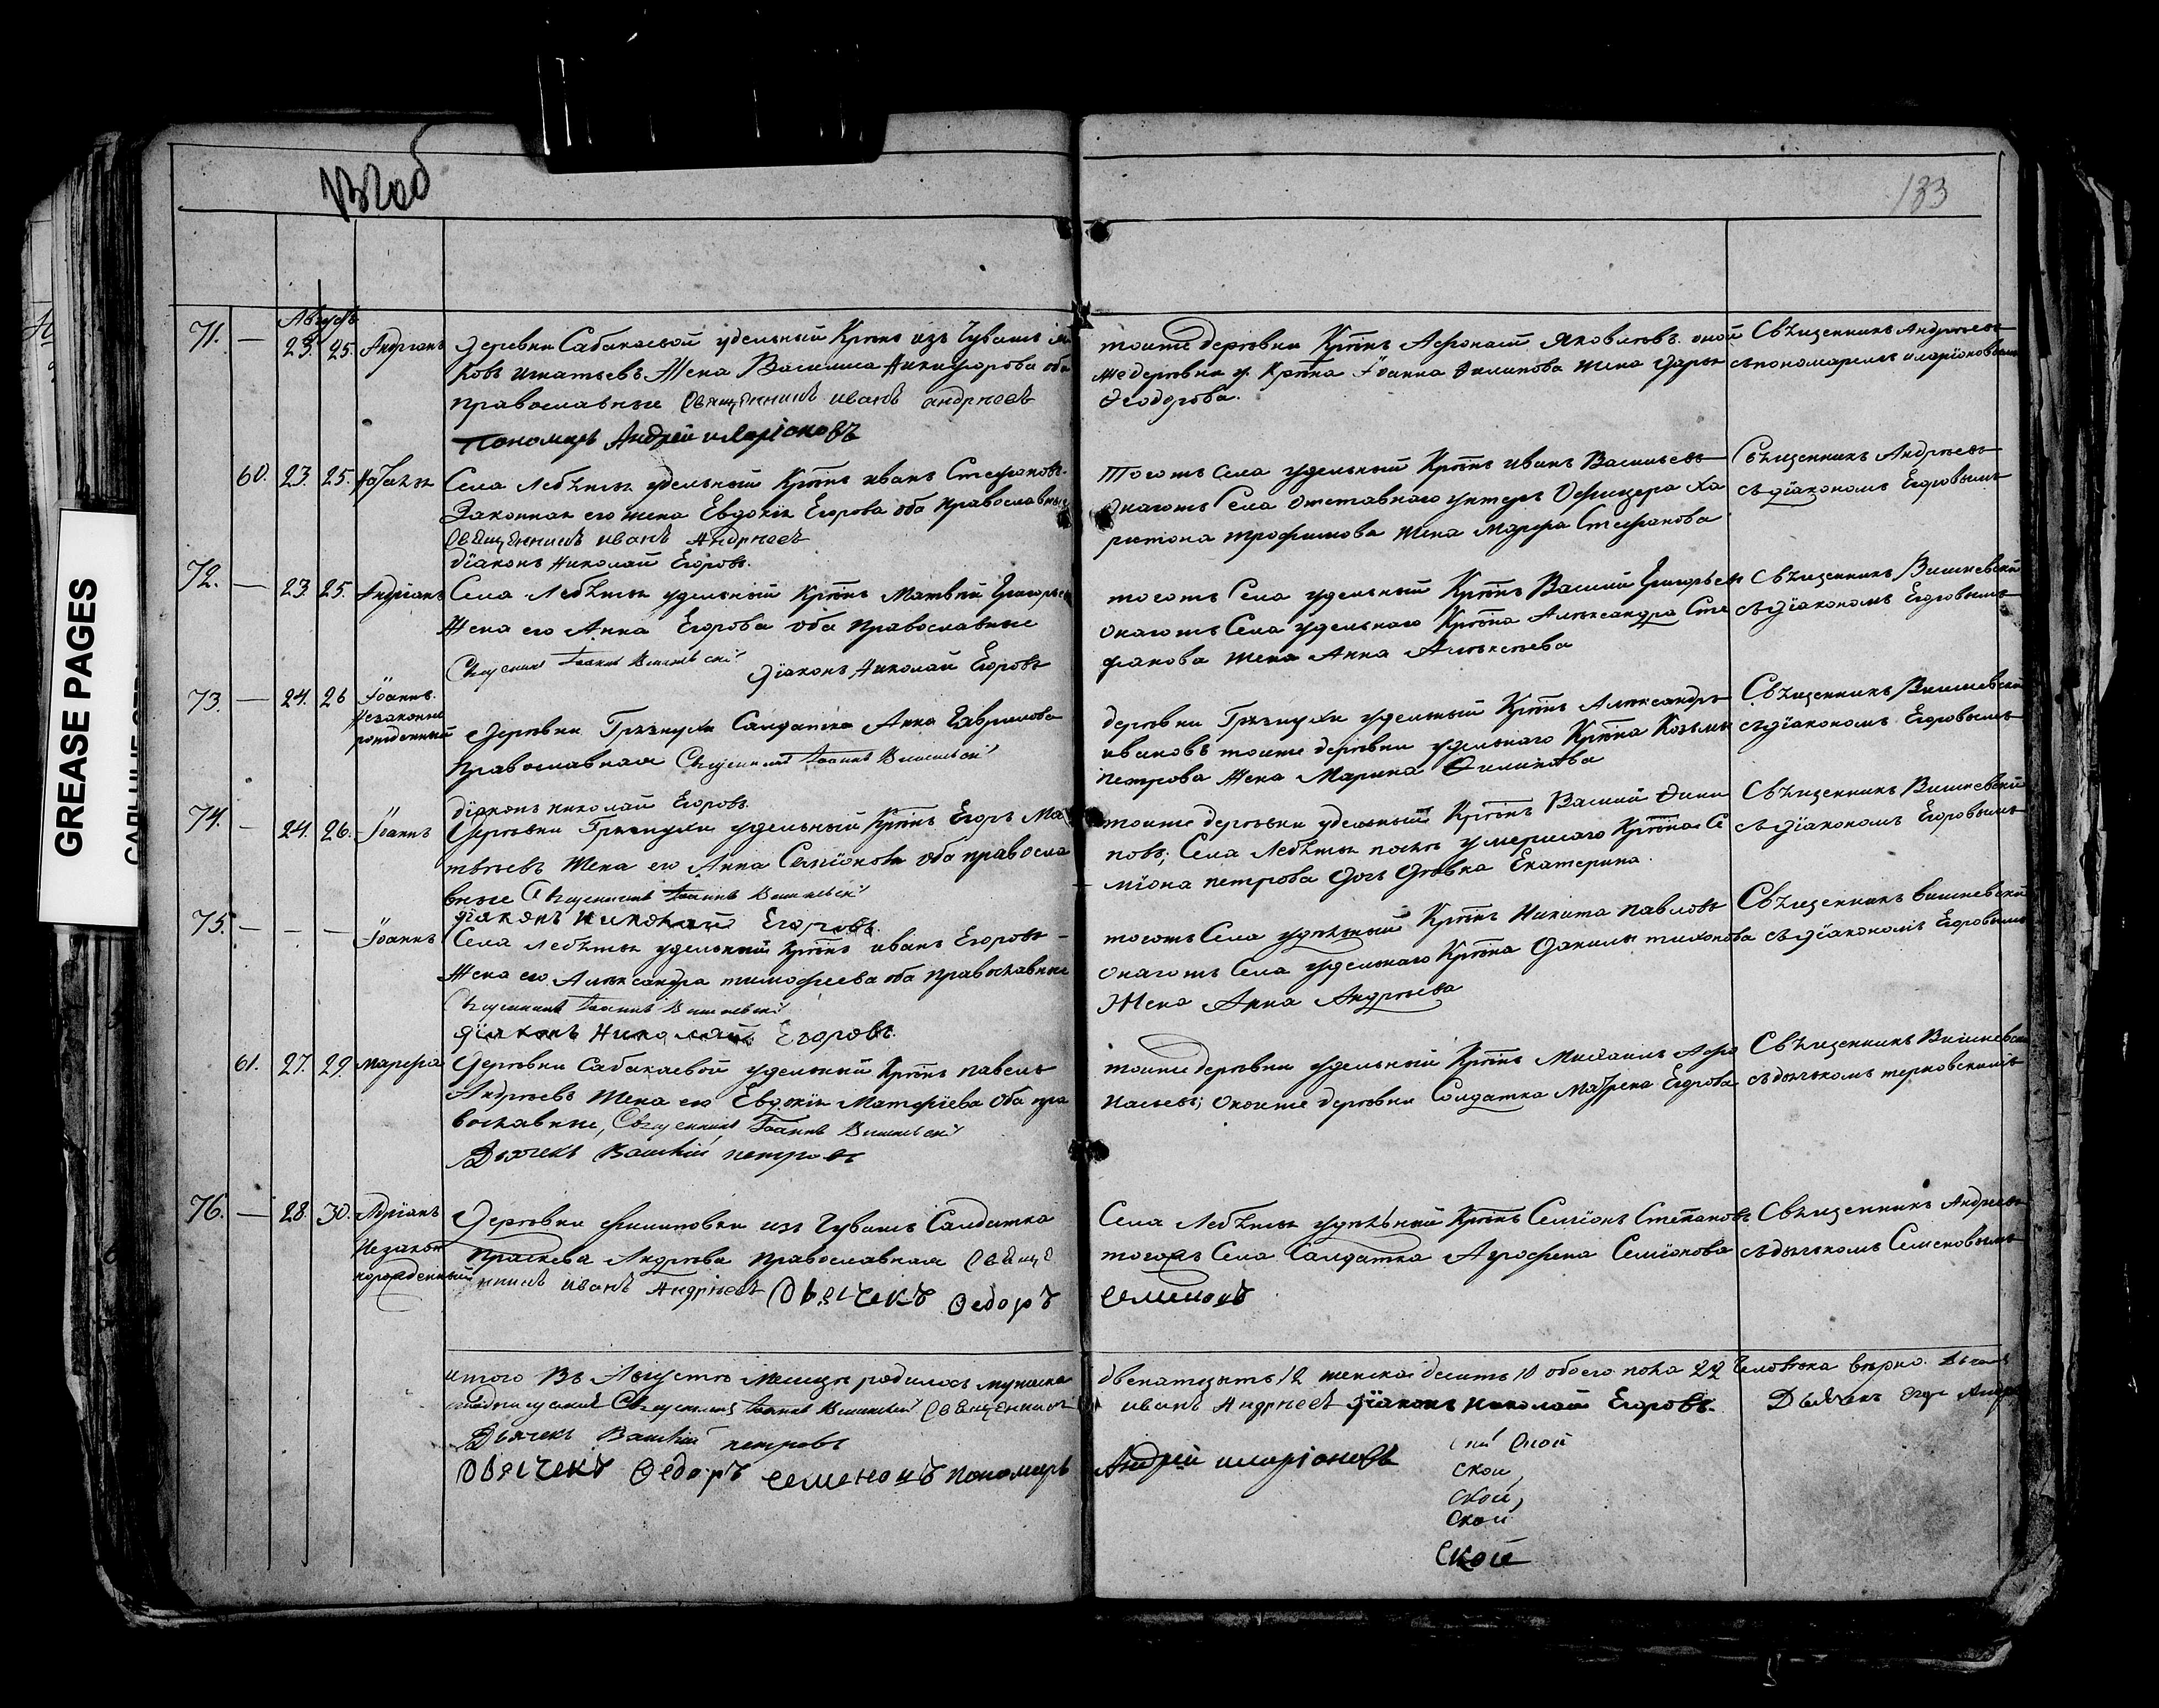 133
GREASE PAGES
Августъ
71. — 23. 25. Андріанъ
Деревни Сабакаевой удельный Крнъ изъ Чувашъ
ковъ игнатьевъ Жена Василиса Никифорова оба
православные Священникъ иванъ андреевъ
Пономарь Андрей иларіоновъ
тойже деревни Крнъ Афонасій Яковлевъ оной
же деревни у. Крна Іоанна Филипова жена Дарья
Феодорова.
Свъщенникъ Андреевъ
съ пономаремъ иларіоновымъ
60. 23. 25. Наталья
Села Лебъжья удельный Крнъ иванъ Стефановъ
Законная его жена Евдокія Егорова оба Православные
Священникъ иванъ Андреевъ
діаконъ Николай Егоровъ.
Тогожъ Села удельный Крнъ иванъ Васильевъ
Онагожъ Села отставнаго унтеръ Офицера Ха
ритона трофимова жена Марфа Стефанова
Свъщенникъ Андреевъ
съ діакономъ Егоровымъ
72. — 23. 25. Андріанъ
Села Лебъжья удельный Крнъ Матвей Григорьевъ
Жена его Анна Егорова оба православные
Священникъ Іоаннъ Вишневскій діаконъ Николай Егоровъ
тогожъ Села удельный Крнъ Василій Григорьевъ
Онагожъ Села удельнаго Крна Александра Сте
фанова жена Анна Алексеева
Свъщенникъ Вишневскій
съ діакономъ Егоровымъ
73. — 24. 26 Іоаннъ.
Незаконно
рожденный
Деревни Грязнухи Салдатка Анна Гаврилова
православная Священникъ Іоаннъ Вишневскій
діаконъ николай Егоровъ.
деревни Грязнухи удельный Крнъ Александръ
ивановъ тойже деревни удельнаго Крна Козьмы
петрова Жена Марина Филипова
Свъщенникъ Вишневскій
съ діакономъ Егоровымъ
74. — 24. 26. Іоаннъ
Деревни Грязнухи удельный Крнъ Егоръ Ма
твеевъ Жена его Анна Семіонова оба правосла
вные Священникъ Іоаннъ Вишневскій
діаконъ николай Егоровъ.
тойже деревни удельный Крнъ Василій Фили
повъ; Села Лебъжья после умершаго Крна Се
міона петрова дочь девка Екатерина.
Свъщенникъ Вишневскій
съ діакономъ Егоровымъ
75. — — — Іоаннъ
Села Лебъжья удельный Крнъ иванъ Егоровъ
Жена его Александра тимофеева оба православные
Священникъ Іоаннъ Вишневскій
діаконъ Николай Егоровъ.
тогожъ Села удельный Крнъ Никита павловъ
Онагожъ Села удельнаго Крна Данилы тихонова
Жена Анна Андреева
Свъщенникъ вишневскій
съ діакономъ Егоровымъ
61. 27. 29. марфа
Деревни Сабакаевой удельный Крнъ павелъ
Андреевъ Жена его Евдокія Матфіева Оба пра
вославные, Священникъ Іоаннъ Вишневскій
Дьячекъ Василій петровъ
тойже деревни удельный Крнъ Михаилъ Афо
насьевъ; Онойже деревни Солдатка Матрена Егорова
Свъщенникъ Вишневскій
съ дьячкомъ терновскимъ
76. — 28. 30. Адріанъ
Незакон
норожденный
Деревни филиповки изъ Чувашъ Салдатка
Праскева Андреева православная Священ
никъ иванъ Андреевъ Дьячекъ Федоръ
Села Лебъжья удельный Крнъ Семіонъ Степановъ
тогожъ Села Салдатка Агрофена Семіонова
семеновъ
Свъщенникъ Андреевъ
съ дьячкомъ Семеновымъ
итого Въ Августе месяце родилось мужска
двенатцать 12 женска десять 10 обоего пола 22 человека верно.
Священникъ Іоаннъ Вишневскій Священникъ
иванъ Андреевъ діаконъ николай Егоровъ.
Дьячекъ Егоръ
Дьячекъ Василій петровъ
Дьячекъ Федоръ семеновъ пономарь
Андрей иларіоновъ
ской
ской,
ской,
ской
ской